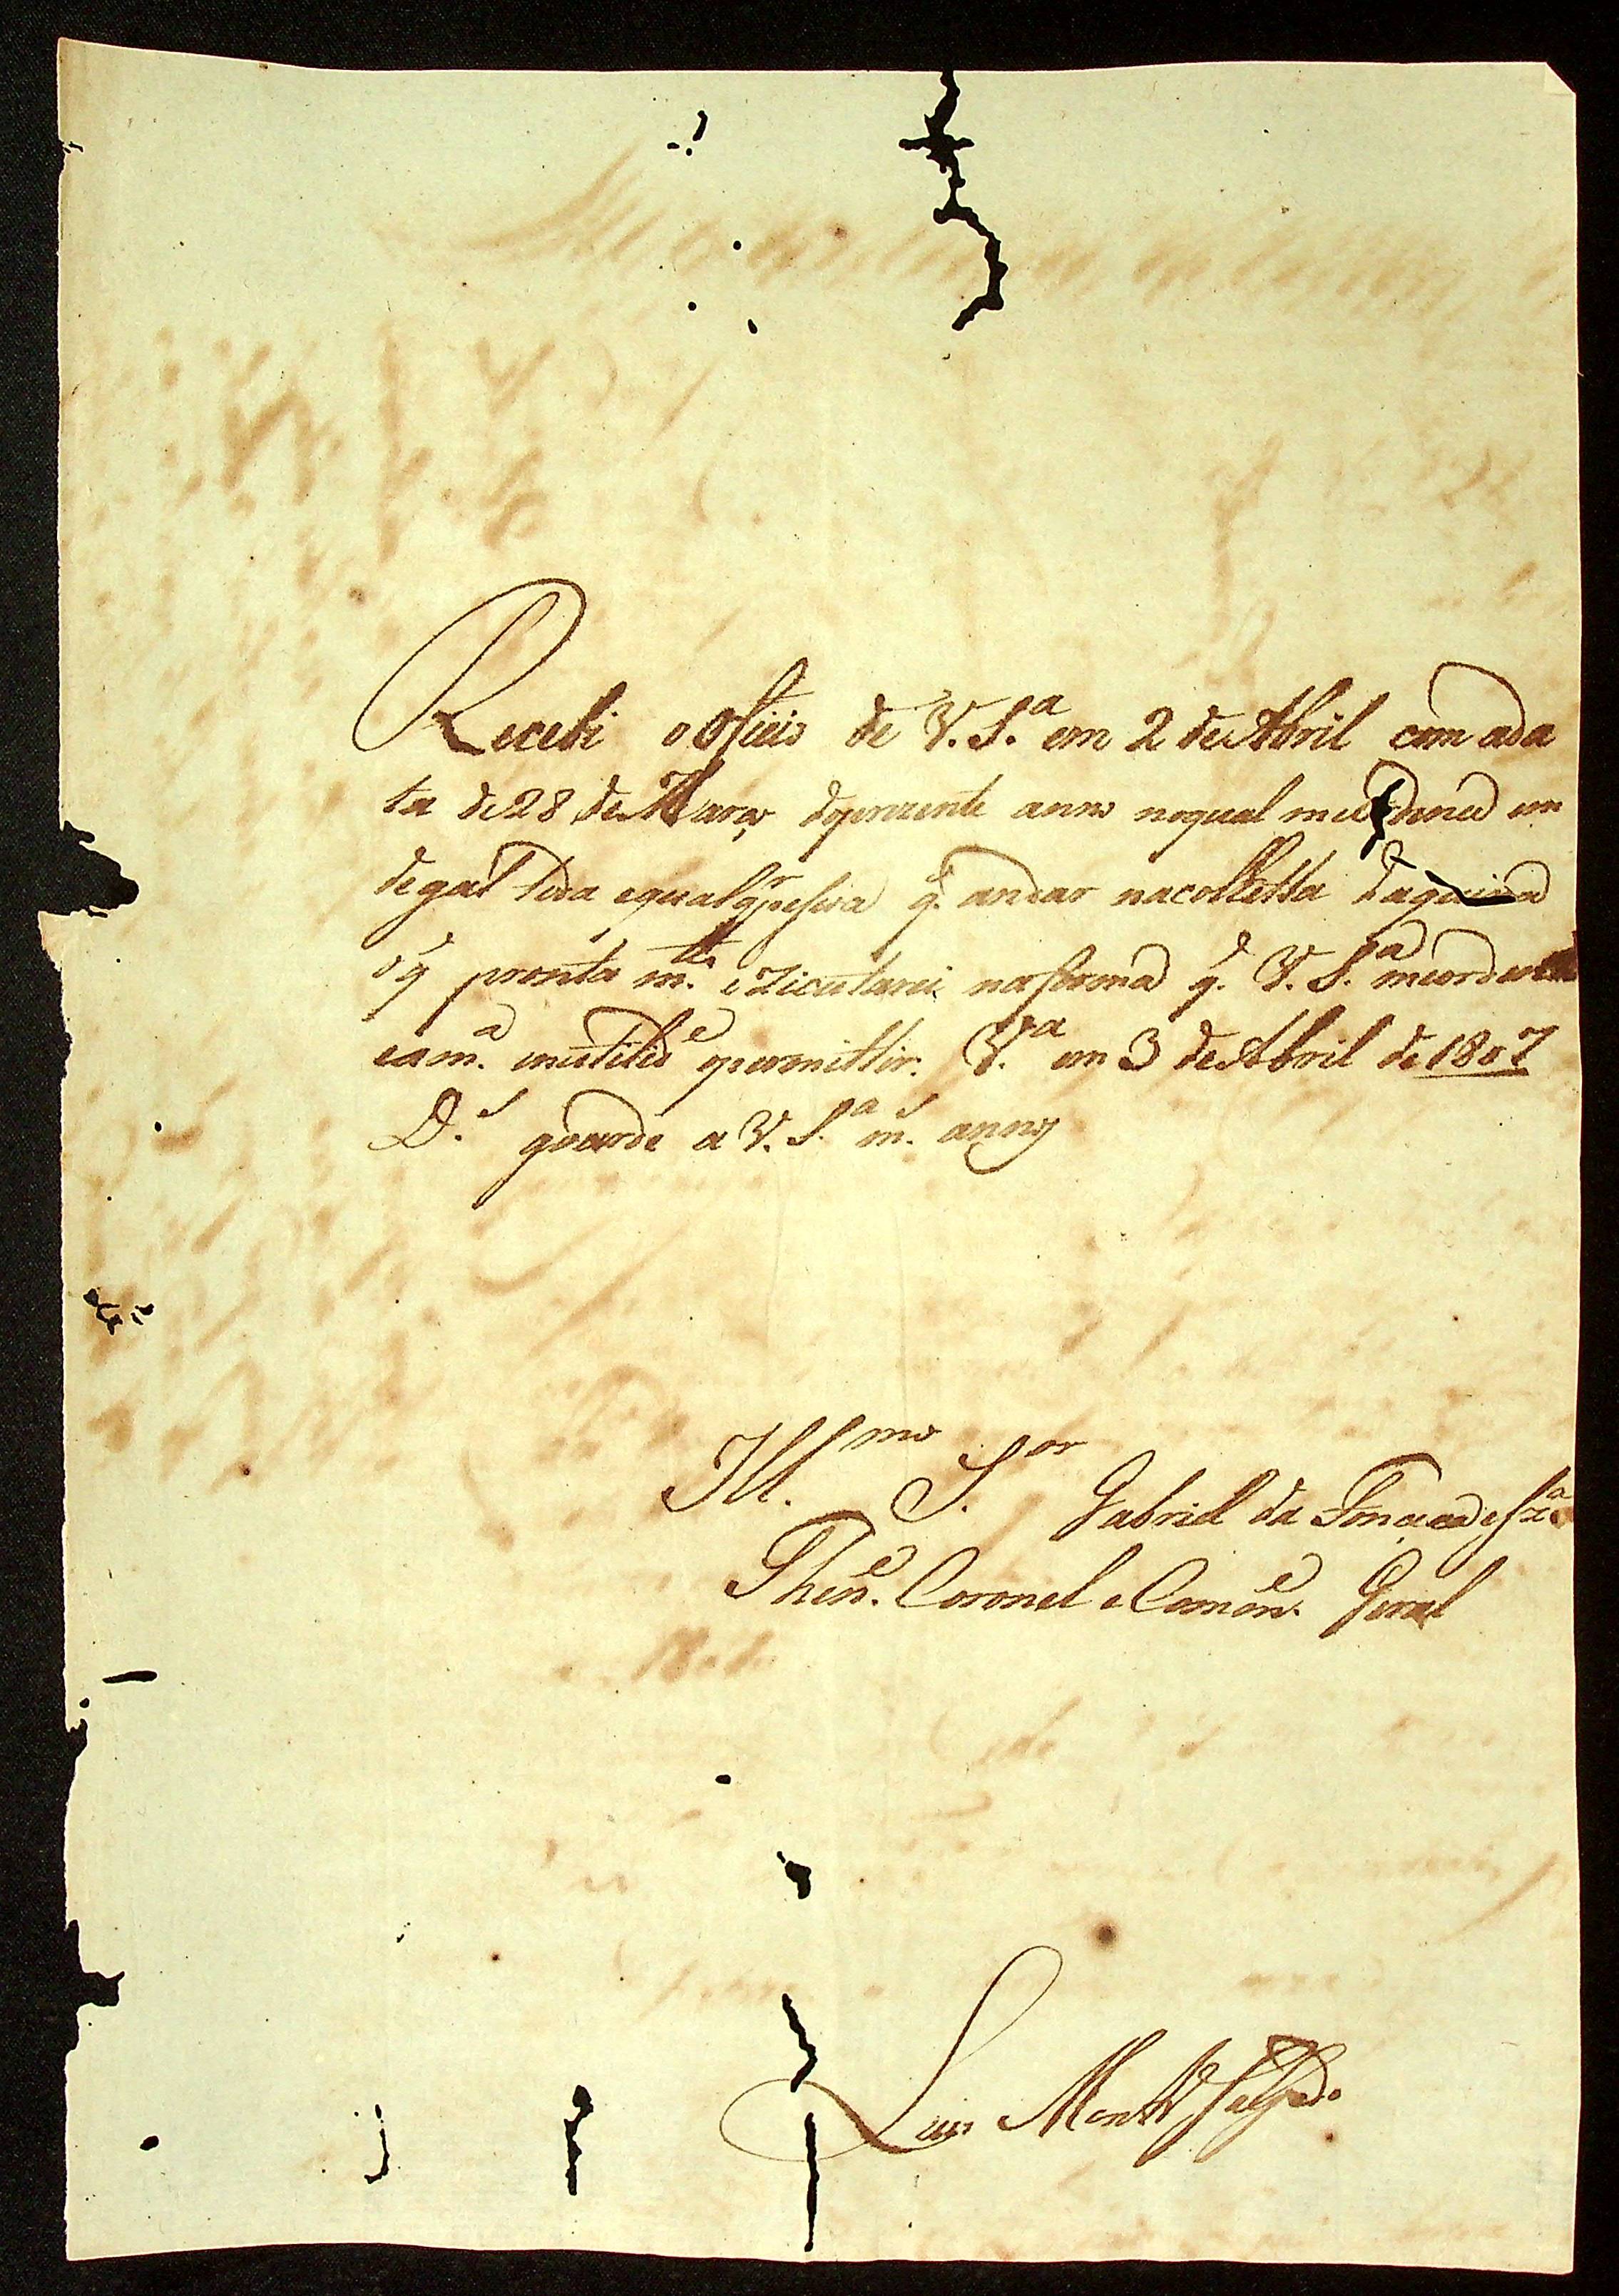 Recebi o Oficio de V. S.ª em 2 de Abril com a da
ta de 28 de Março do prezente anno no qual me ordena em
de toda e qual q.r pessoa q.e andar na colletta da
o q.e pronta m.te ezicutarei na forma q.e V. S.ª me ordena
e a m.ª permittir. V.ª em 3 de Abril de 1807
D.s guarde a V. S.ª m.s annos
Ill.mo S.or Gabriel da Fonceca e Sz.ª
Then.e Coronel e Comon.e Geral
Luis Salgado